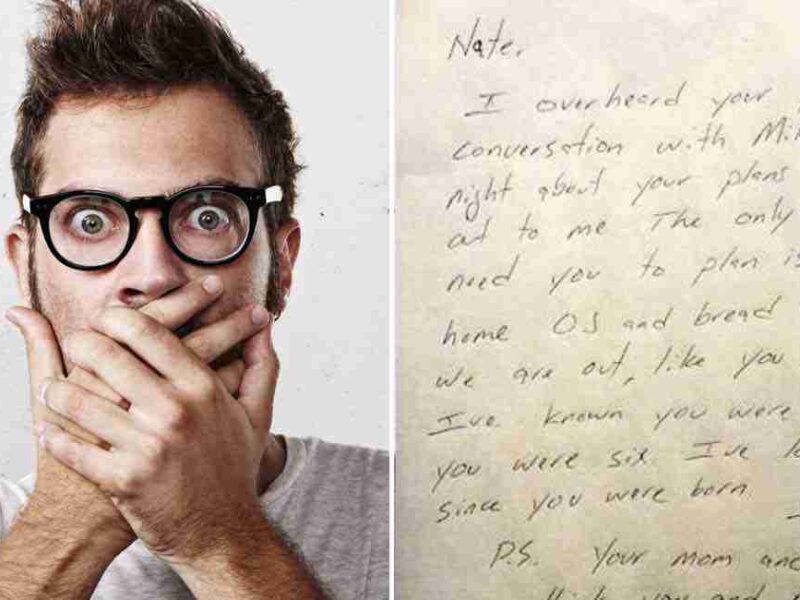 Nate.
I overheard your
conversation with Mi
night about your plans
out to me The only
need you to plan is
home OJ and bread
we are out, like you
I've known you were
you were six. I've lo
since you were born
P.S. Your mom and